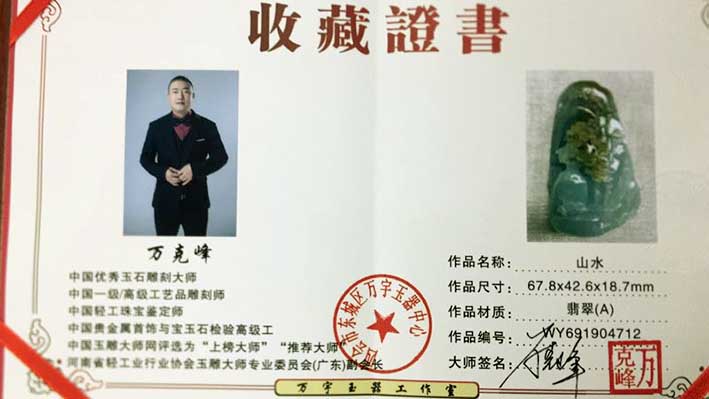 收藏證書
万克峰
中国优秀玉石雕刻大师
中国一级/高级工艺品雕刻师
中国轻工珠宝鉴定师
中国贵金属首饰与宝玉石检验高级工
中国玉雕大师网评选为“上榜大师”“推荐大师”
河南省轻工业行业协会玉雕大师专业委员会(广东)副会长
四会市东城区万宇玉器中心
作品名称: 山水
作品尺寸: 67.8x42.6x18.7mm
作品材质: 翡翠(A)
作品编号: WY691904712
大师签名:
万克峰
万宇玉器工作室